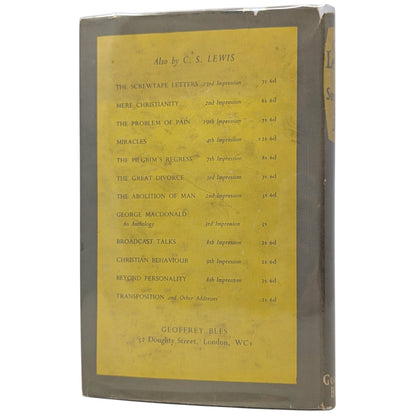 Also by C. S. LEWIS
THE SCREWTAPE LETTERS 23rd Impression 7s 6d
MERE CHRISTIANITY 2nd Impression 8s 6d
THE PROBLEM OF PAIN 19th Impression 7s 6d
MIRACLES 4th Impression 12s 6d
THE PILGRIM'S REGRESS 7th Impression 8s 6d
THE GREAT DIVORCE 3rd Impression 7s 6d
THE ABOLITION OF MAN 2nd Impression 5s 6d
GEORGE MACDONALD
An Anthology 3rd Impression 5s
BROADCAST TALKS 8th Impression 2s 6d
CHRISTIAN BEHAVIOUR 9th Impression 2s 6d
BEYOND PERSONALITY 8th Impression 2s 6d
TRANSPOSITION and Other Addresses 2s 6d
GEOFFREY BLES
52 Doughty Street, London, WC1